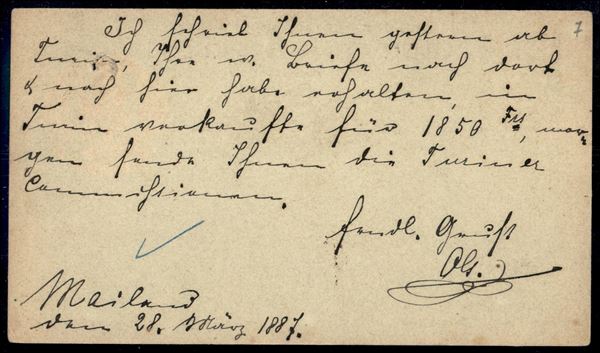 Ich schrieb Ihnen gestern ab
Turin, Ihre w. Briefe nach dort
& nach hier habe erhalten, in
Turin verkaufte für 1850 Frs, mor-
gen sende Ihnen die Turiner
Commissionen.
Frndl. Gruß
Mailand
den 28. März 1887.
7